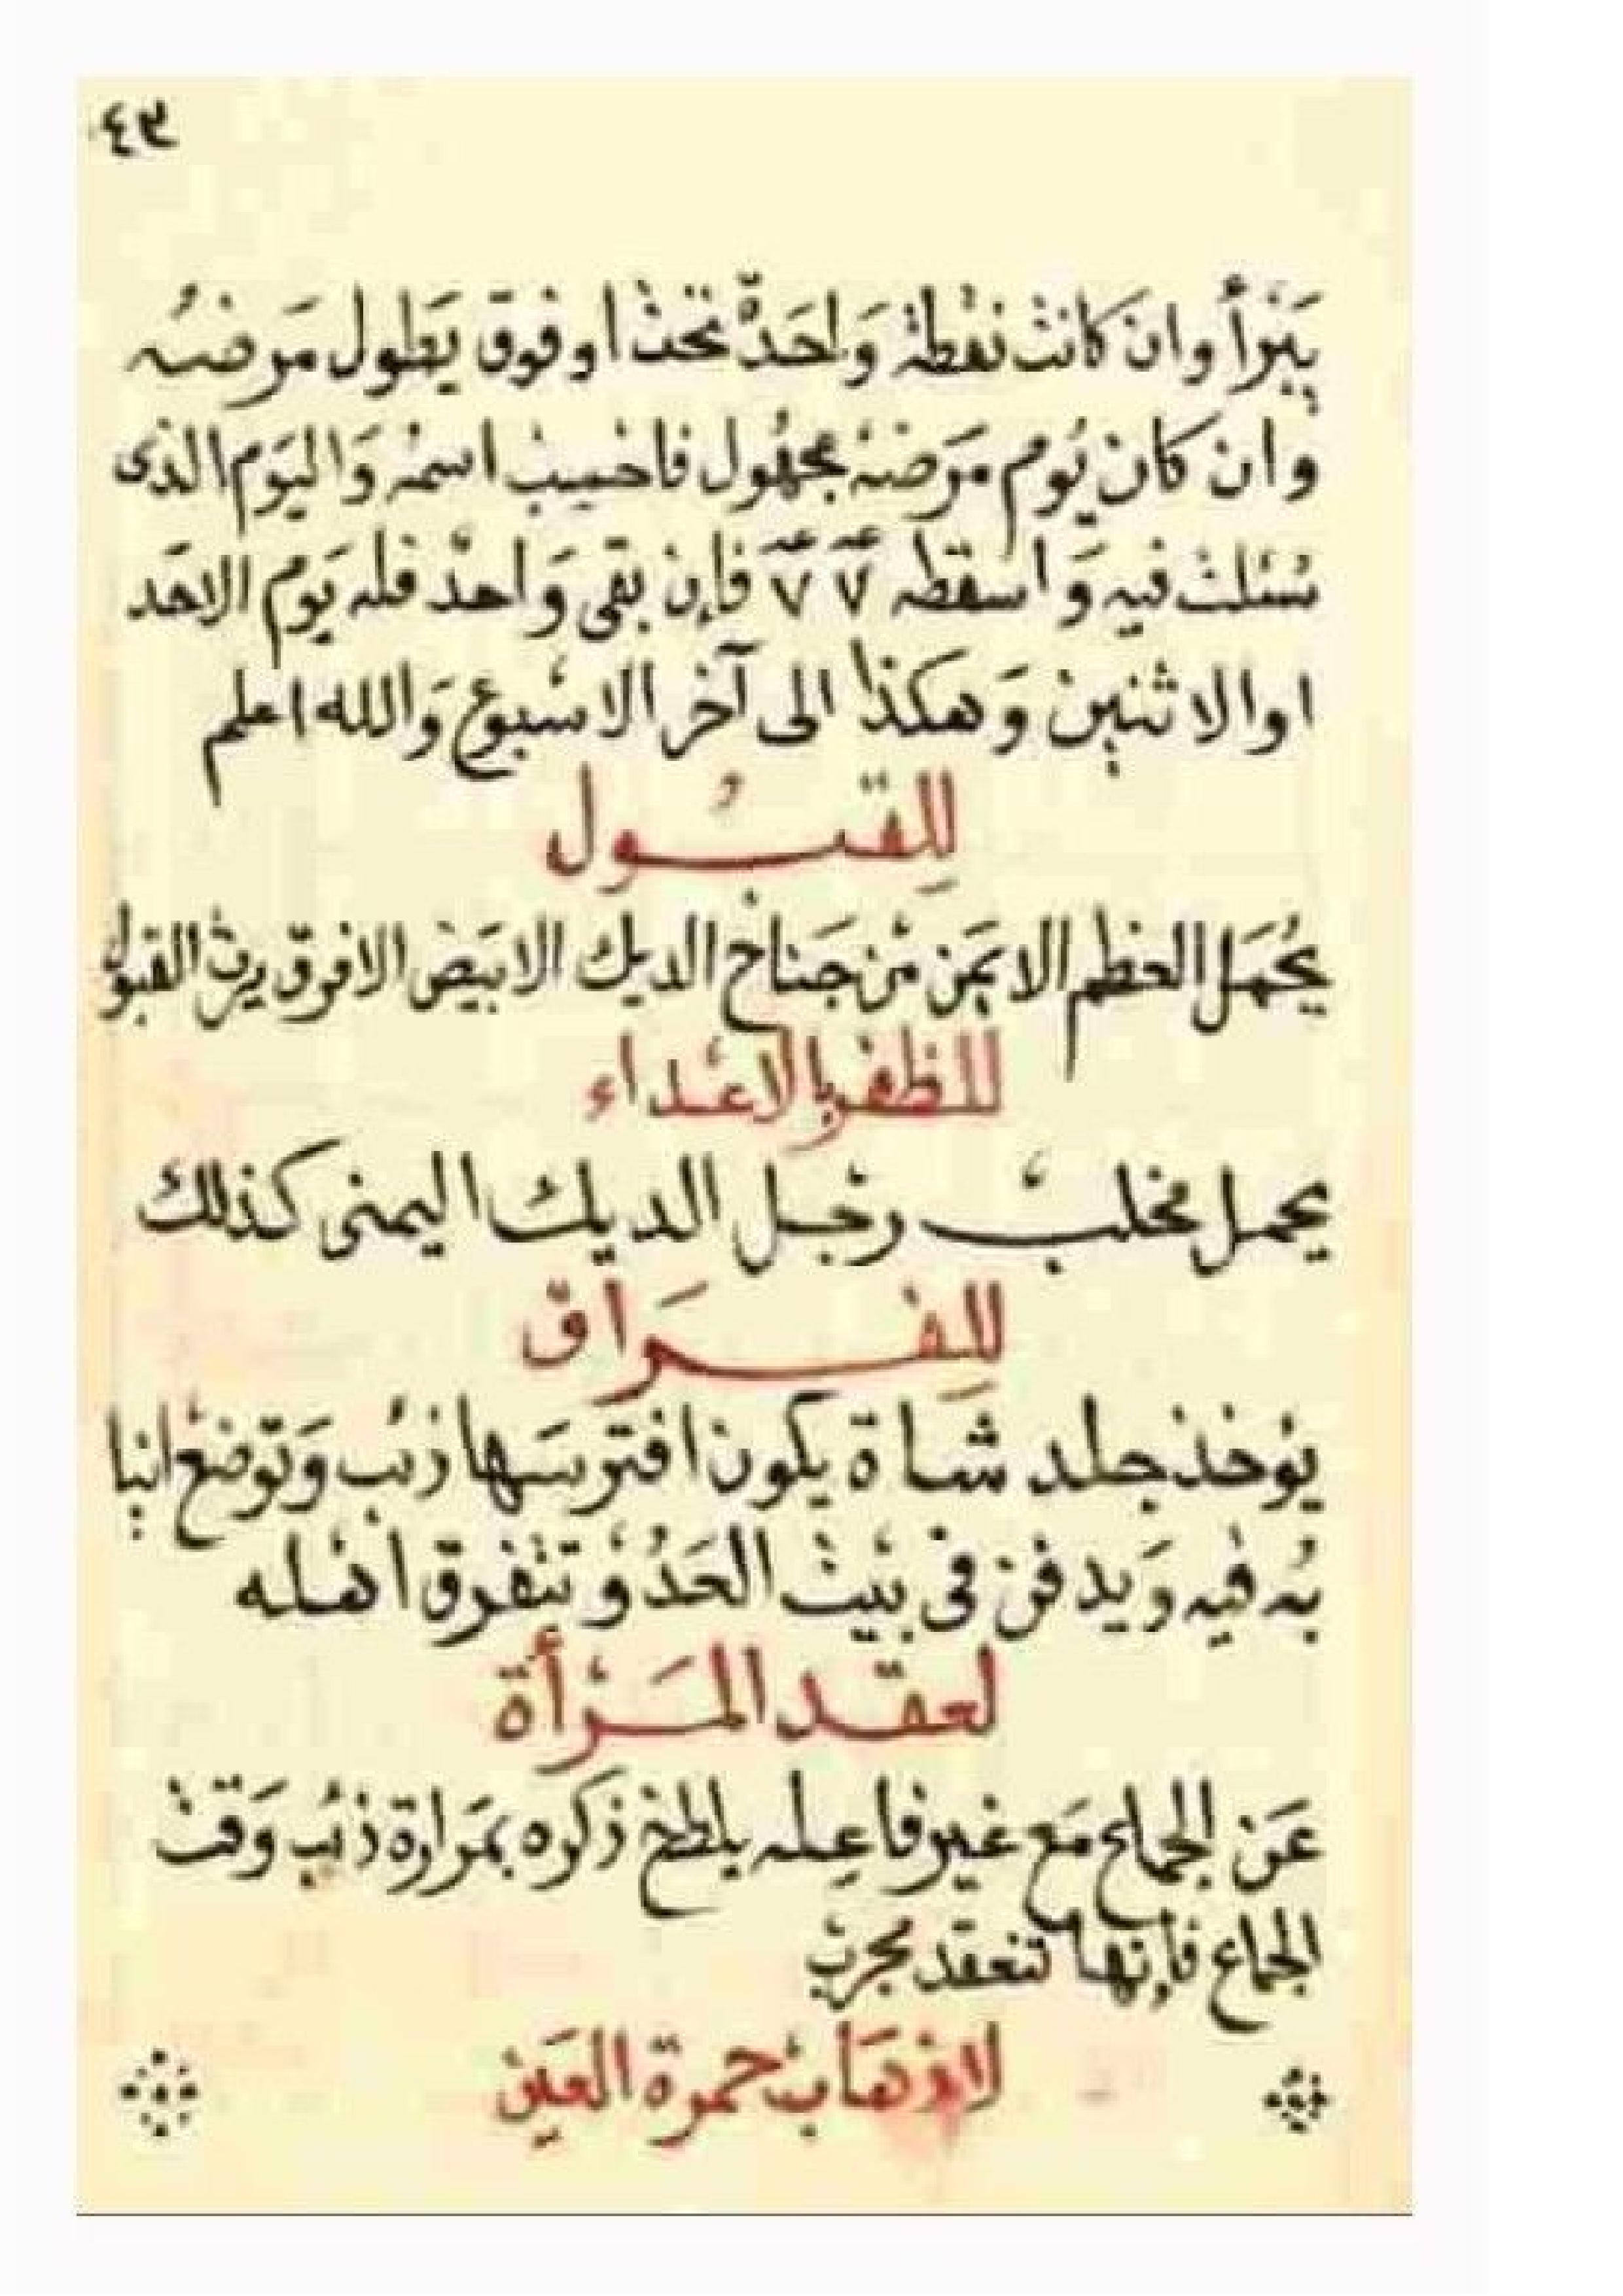 ٤٣
يَبْرأ وان كانت نقطة وَاحدّ تحت اوفوق يَطول مَرضهُ
وان كان يُوم مَرَضهُ مجهُول فاحسِبْ اسمهُ وَاليَوم الذى
سُئلت فيه وَ اسقطه ٧ ٧ فإن بقى وَاحدّ فله يَوم الاحَد
اوالاثنين وَهكذا الى آخر الاسْبوع وَالله اعلم
لِلقبُـول
يُحْمَل العظم الايَمن مْن جَناح الديك الابيَض الافرق يرث القبول
للظفر بالاعْداء
يحمل مخلبْ رجْل الديك اليمنى كذلك
لِلفـرَاق
يوُخذ جلد شاة يكون افترسَها ذئب وَتوضع انيا
بُه فيه وَيدفن فى بيْت العَدُوْ تتفرق اهله
لعقد المَـرْأة
عَن الجماع مَع غير فاعِله يلطخ ذكره بمَرارة ذئب وَقت
الجماع فإنها تنعقد مجرب
لاذهَاب حمرة العَين